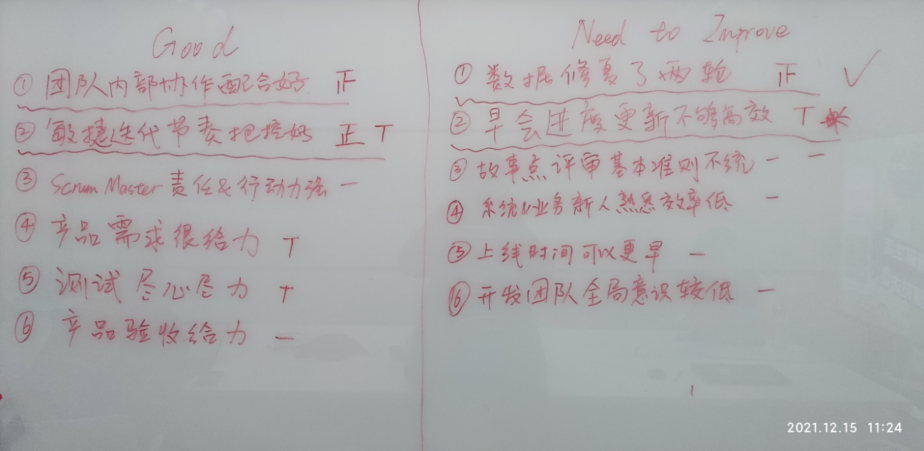 Good
① 团队内部协作配合好 正
② 敏捷迭代节奏把控好 正 T
③ Scrum Master 责任&行动力强 一
④ 产品需求很给力 T
⑤ 测试尽心尽力 T
⑥ 产品验收给力 一
Need to Improve
① 数据修复了两轮 正 ✓
② 早会进度更新不够高效 T
③ 故事点评审基本准则不统一 一
④ 系统&业务新人熟悉效率低 一
⑤ 上线时间可以更早 一
⑥ 开发团队全局意识较低 一
2021.12.15 11:24